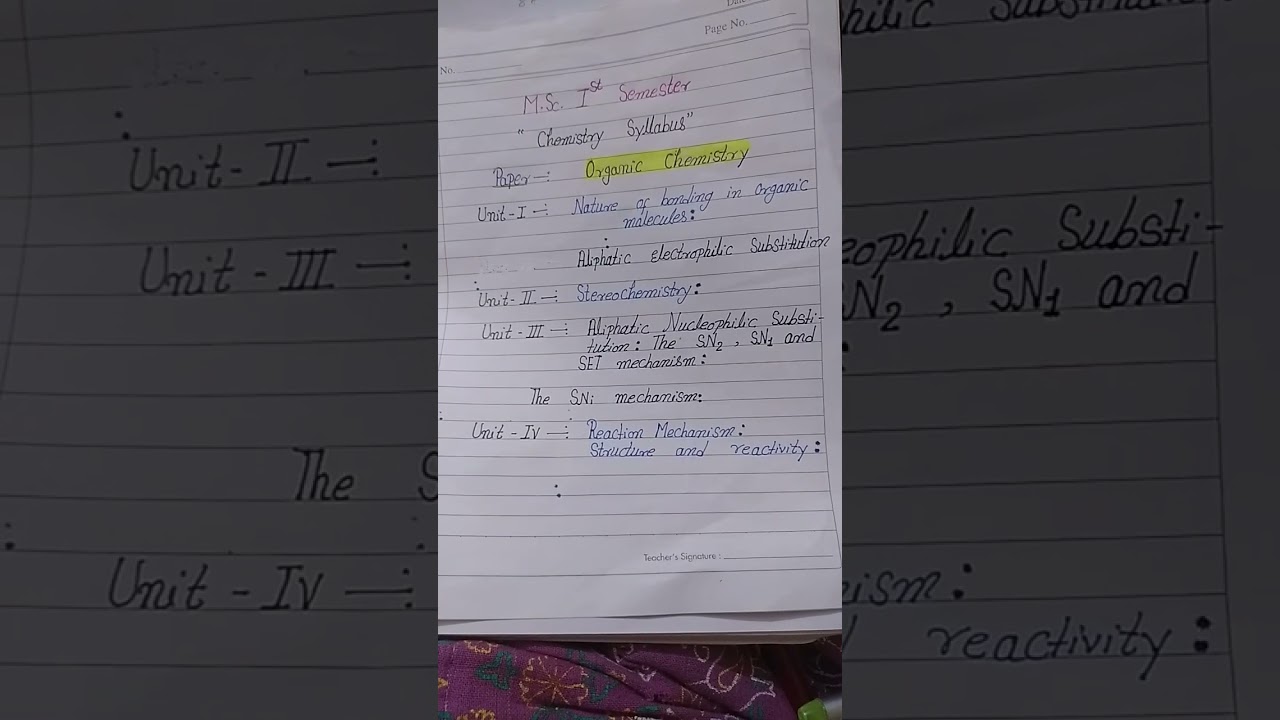 Date
Page No.
No.
M.Sc. Ist Semester
"Chemistry Syllabus"
Paper-: Organic Chemistry
Unit-I-: Nature of bonding in organic
molecules:
Aliphatic electrophilic Substitution
Unit-II-: Stereochemistry:
Unit-III-: Aliphatic Nucleophilic Substi-
tution: The SN2, SN1 and
SET mechanism:
The SNi mechanism:
Unit-IV-: Reaction Mechanism:
Structure and reactivity:
Teacher's Signature: